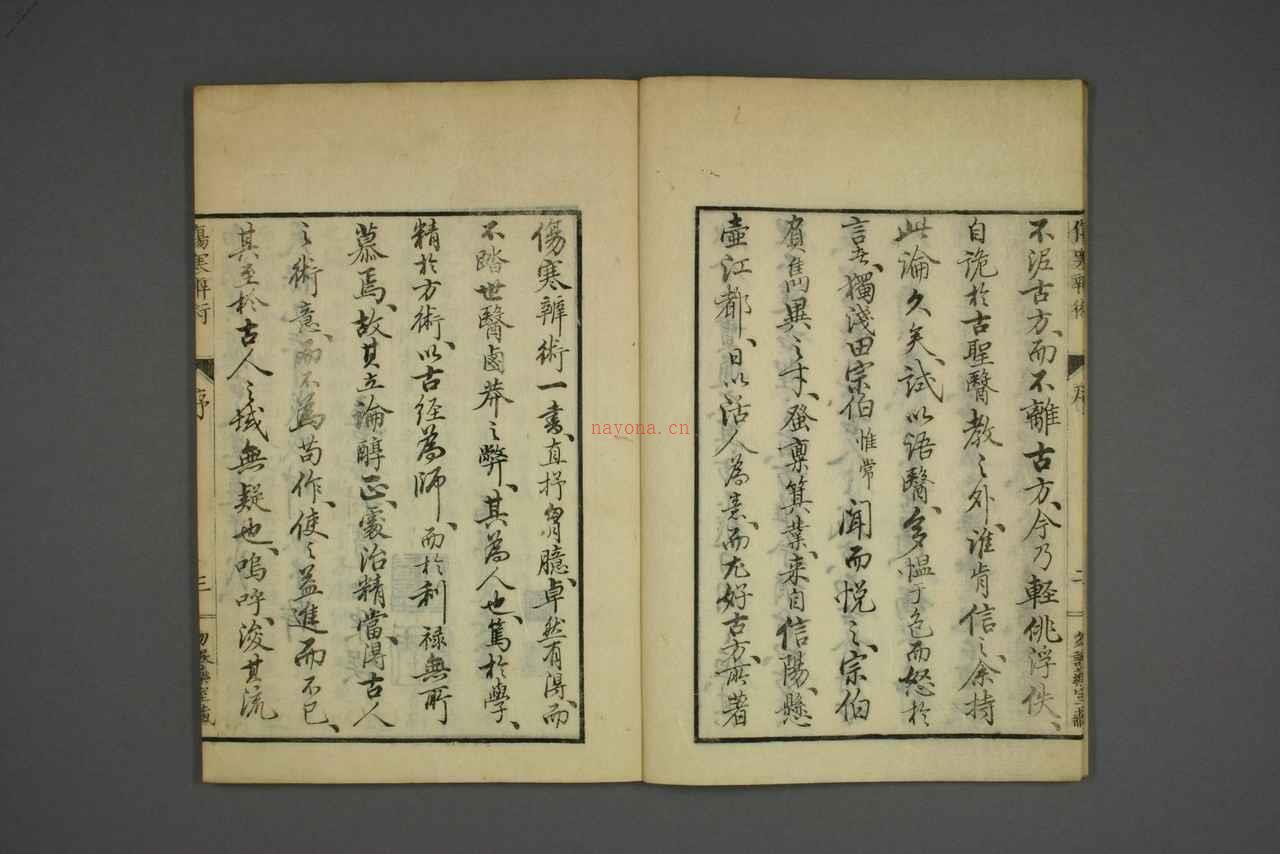 不泥古方、而不離古方、今乃輕佻浮佚、
自詭於古聖醫教之外、誰肯信之、余持
此論久矣、試以語醫、多愠于色而怒於
言者、獨淺田宗伯惟常聞而悅之、宗伯
資雋異之才、蚤稟箕業、来自信陽、懸
壺江都、日以活人為意、而尤好古方、所著
傷寒辨術
序
二
傷寒辨術一書、直抒胷臆、卓然有得、而
不踏世醫鹵莽之弊、其為人也、篤於學、
精於方術、以古經為師、而於利祿無所
慕焉、故其立論醇正、處治精當、得古人
之術意、而不為苟作、使之益進而不已、
其至於古人之域無疑也、嗚呼、浚其流
傷寒辨術
序
三
nayona.cn